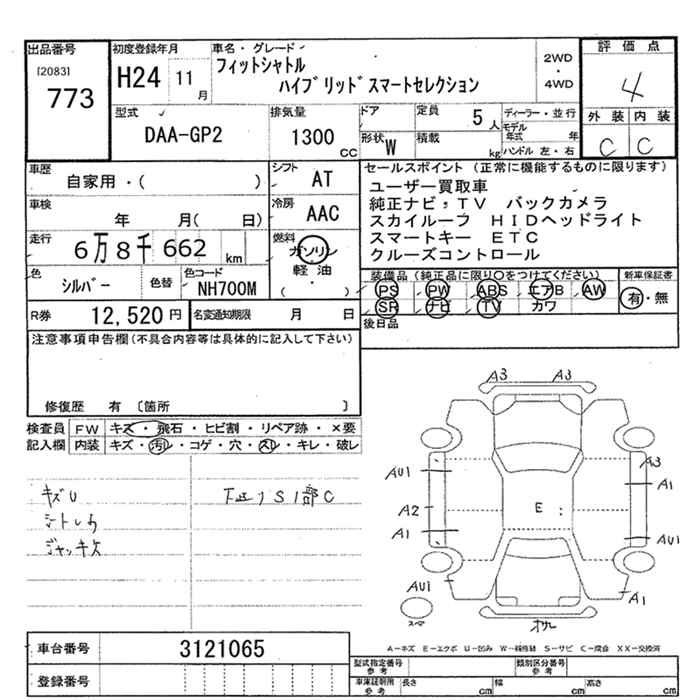 出品番号
[2083]
773
初度登録年月
H24 11月
車名・グレード
フィットシャトル
ハイブリッドスマートセレクション
2WD
・
4WD
評価点
4
外装 内装
C C
型式
DAA-GP2
排気量
1300 CC
ドア
定員
5人
形状 W
積載
kg
ディーラー・並行
モデル年式 年
ハンドル 左・右
車歴
自家用・( )
シフト
AT
車検
年 月( 日)
冷房
AAC
走行
6万8千662 km
燃料
ガソリン
軽油
・
( )
色
シルバー
色替
色コード
NH700M
セールスポイント(正常に機能するものに限ります)
ユーザー買取車
純正ナビ,TV バックカメラ
スカイループ HIDヘッドライト
スマートキー ETC
クルーズコントロール
装備品(純正品に限り○をつけてください)
PS PW ABS エアB AW
SR ナビ TV カワ
新車保証書
有・無
後日品
R券 12,520円
名変通知期限 月 日
注意事項申告欄(不具合内容等は具体的に記入して下さい)
修復歴 有 〔箇所 〕
検査員記入欄
FW キズ・飛石・ヒビ割・リペア跡・×要
内装 キズ・汚レ・コゲ・穴・スレ・キレ・破レ
キズU
ジャッキ欠
A3 A3
AU1
A2
A1
AU1
A3
A1
AU1
A1
E :
スペア
A-キズ E-エクボ U-凹み W-補修跡 S-サビ C-腐食 XX-交換済
車台番号
3121065
登録番号
型式指定番号
参考
類別区分番号
参考
車庫証明用
参考
長さ cm
幅 cm
高さ cm